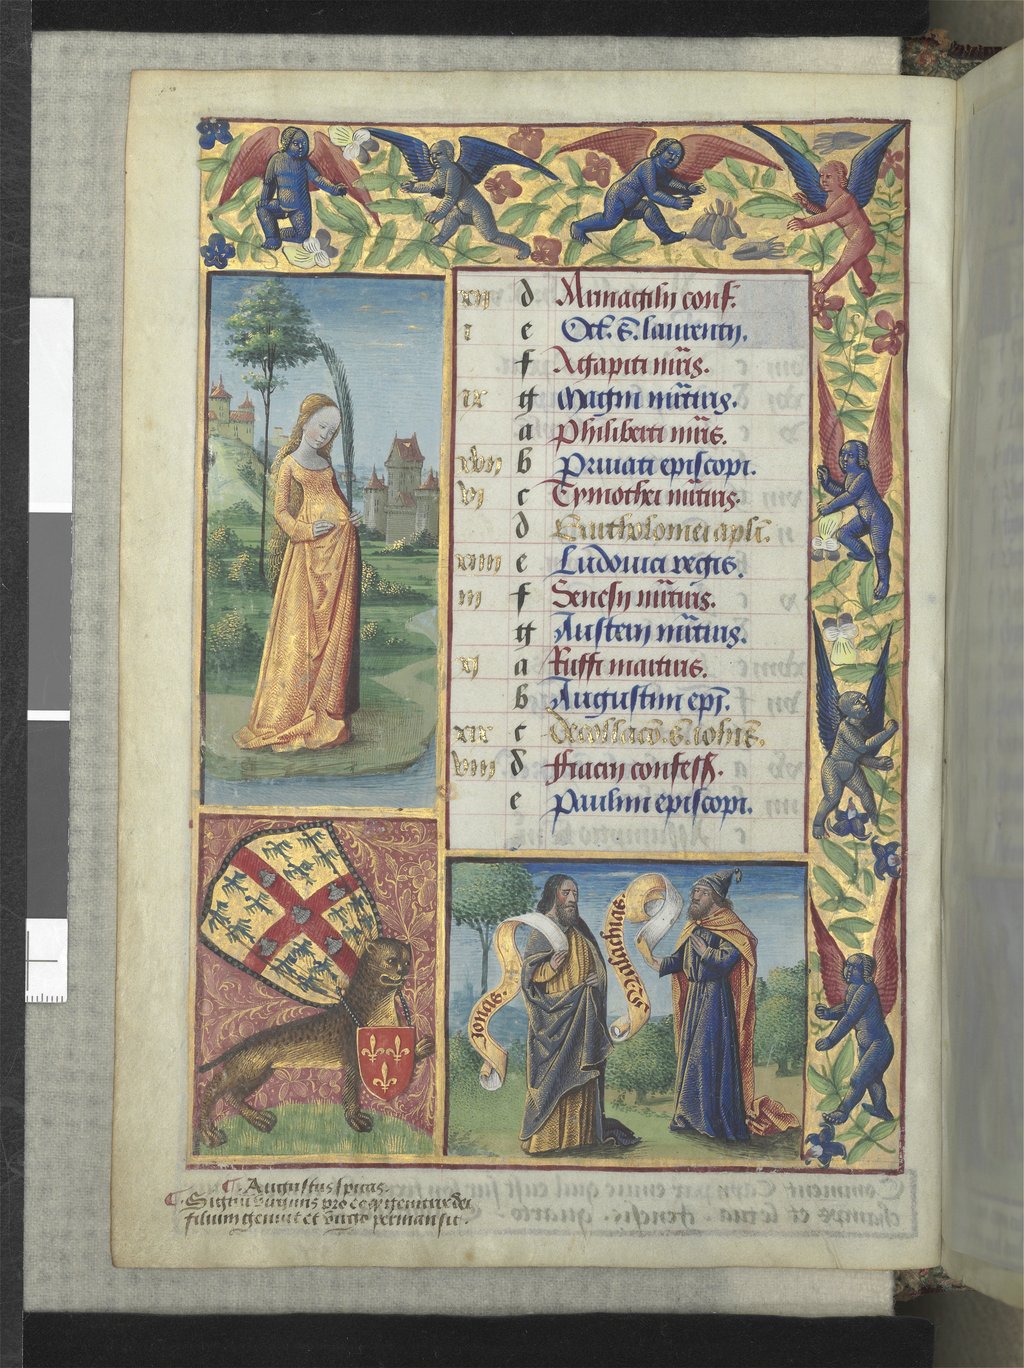 xii d Armagili conf.
i e Oct. s. laurentij.
f Agapiti mr̃is.
ix g Magni mr̃tiris.
a Philiberti mr̃is.
xvii b Privati episcopi.
vi c Tymothei mr̃tiris.
d Bartholomei apli.
xiiii e Ludovici regis.
iii f Genesij mr̃tiris.
g Austerij mr̃tiris.
xi a Ruffi martiris.
b Augustini epi.
xix c Decollacio. s. Iohis.
viii d ffiacrij confess.
e Paulini episcopi.
Ionas.
Malachias.
¶. Augustus spicas.
¶. Signū virginis pro eo q̃ genitrix dei
filium genuit et virgo permansit.